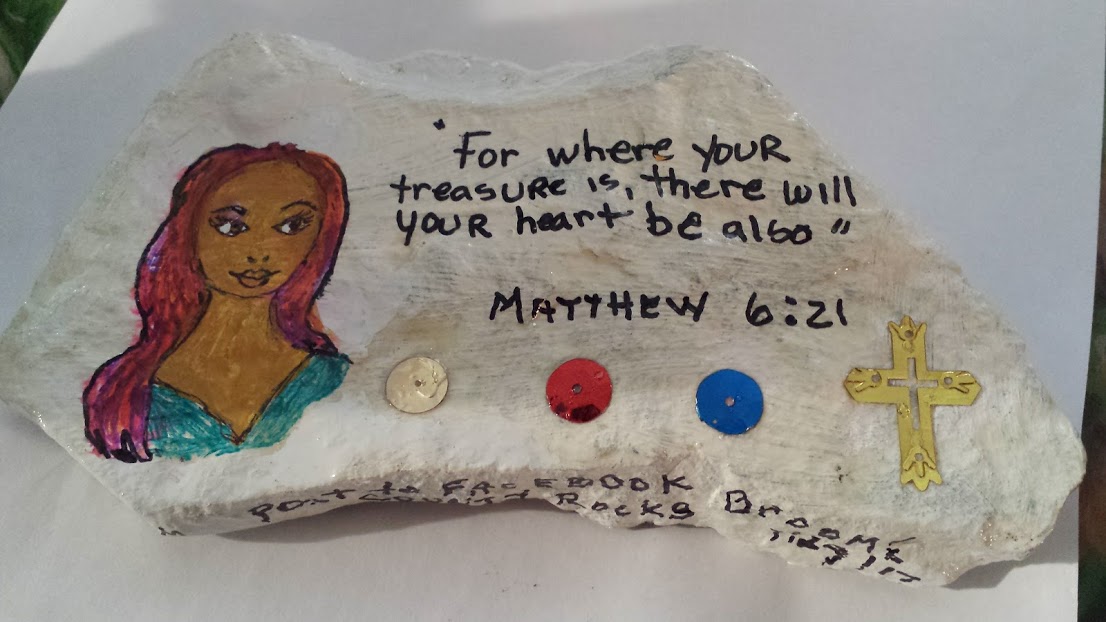 "For where YOUR
treasure is, there will
YOUR heart be also"
MATTHEW 6:21
POST to FACEBOOK
Rocks Broome